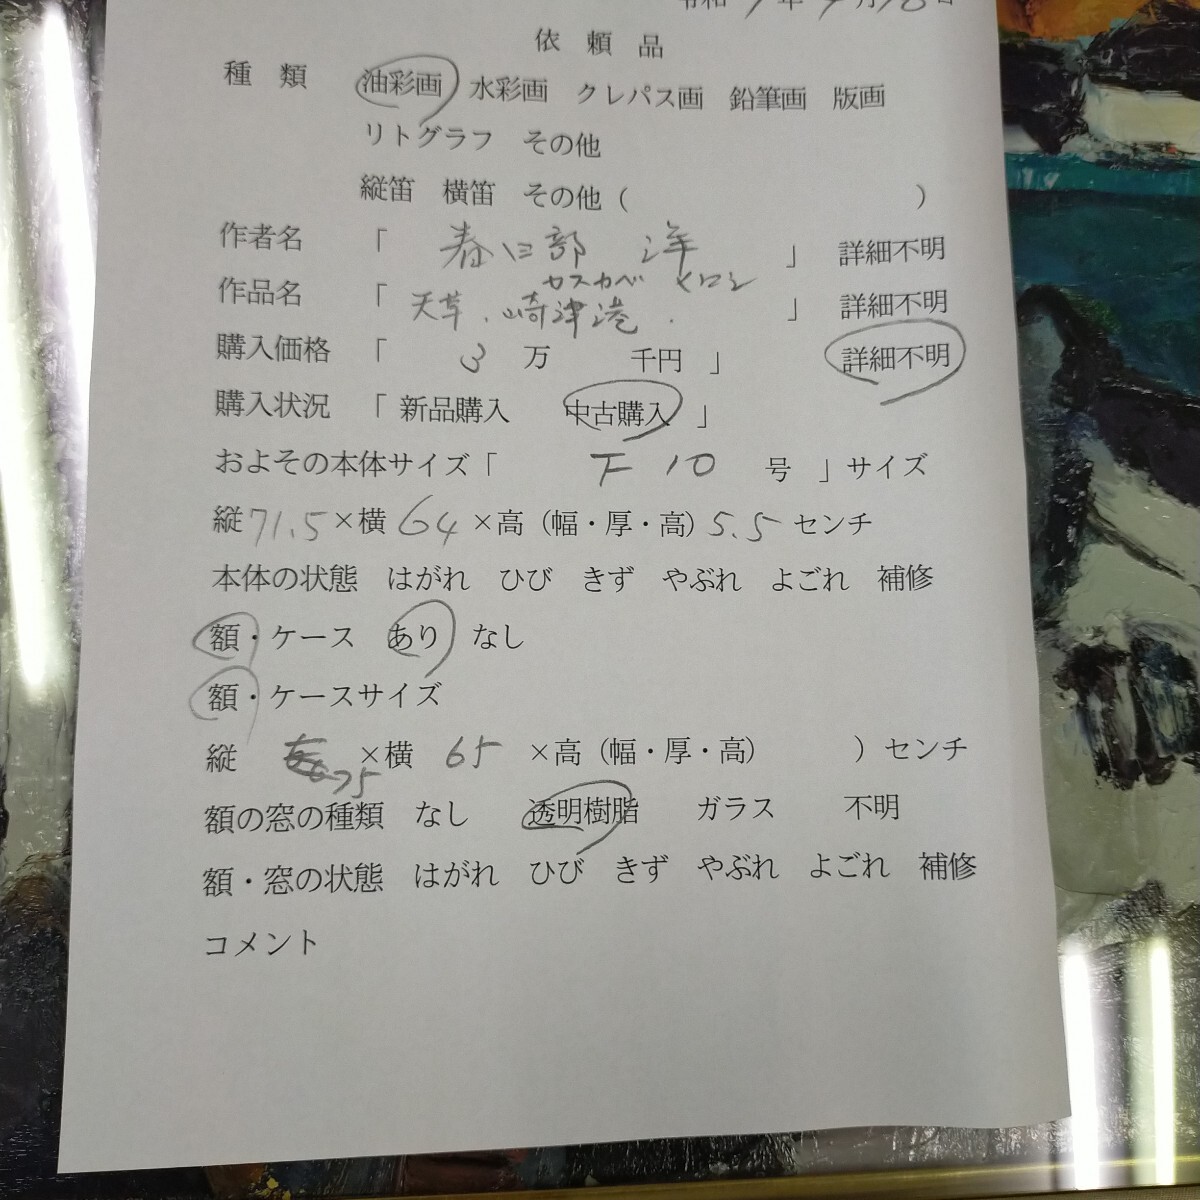 令和7年4月18日
依頼品
種類 油彩画 水彩画 クレパス画 鉛筆画 版画
リトグラフ その他
縦笛 横笛 その他( )
作者名 「 春日部 洋 」 詳細不明
カスカベ ヒロシ
作品名 「 天草、崎津港. 」 詳細不明
購入価格 「 3 万 千円 」 詳細不明
購入状況 「 新品購入 中古購入 」
およその本体サイズ「 F 10 号 」サイズ
縦71.5×横64×高(幅・厚・高)5.5センチ
本体の状態 はがれ ひび きず やぶれ よごれ 補修
額・ケース あり なし
額・ケースサイズ
縦 75 ×横 65 ×高(幅・厚・高) )センチ
額の窓の種類 なし 透明樹脂 ガラス 不明
額・窓の状態 はがれ ひび きず やぶれ よごれ 補修
コメント